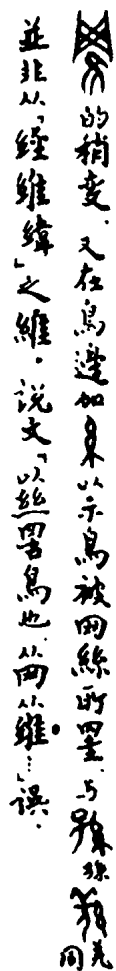 的稍变．又在鳥邊加糸以示鳥被网絲所罣．与
同
並非从「經維緯」之維．说文「以絲罟鳥也从网从維…」误．